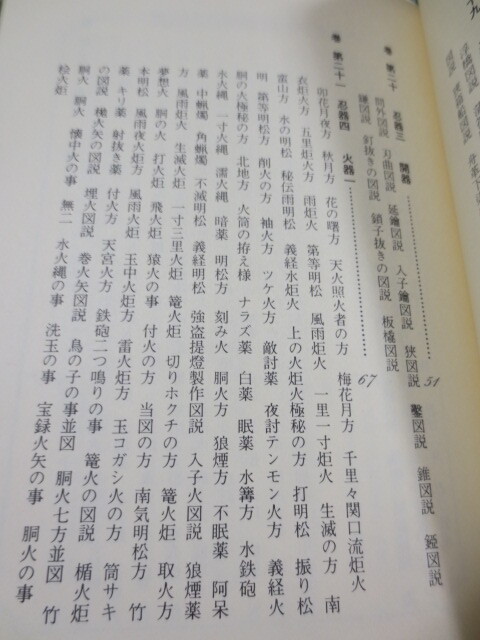 巻 第二十 忍器三 開器 51
問外図説 刃曲図説 延鑰図説 入子鑰図説 狭図説 鑿図説 錐図説 錏図説
鎌図説 釘抜きの図説 鎖子抜きの図説 板橇図説
巻 第二十一 忍器四 火器一 67
卯花月夜方 秋月方 花の曙方 天火照火者の方 梅花月方 千里々関口流炬火
衣炬火方 五里炬火方 雨炬火 第等明松 風雨炬火 一里一寸炬火 生滅の方 南
蛮山方 水の明松 秘伝雨明松 義経水炬火 上の火炬火極秘の方 打明松 振り松
明 第等明松方 削火の方 袖火方 ツケ火方 敵討薬 夜討テンモン火方 義経火
胴の火極秘の方 北地方 火筒の拵え様 ナラズ薬 白薬 眠薬 水篝方 水鉄砲
水火縄 一寸火縄 濡火縄 暗薬 明松方 刻み火 胴火方 狼煙方 不眠薬 阿呆
薬 中蝋燭 角蝋燭 不滅明松 義経明松 強盗提燈製作図説 入子火図説 狼煙薬
方 風雨炬火 生滅火炬 一寸三里火炬 篭火炬 切りホクチの方 篭火炬 取火方
夢想火 胴の火 打火炬 飛火炬 猿火の事 付火の方 当図の方 南気明松方 竹
本明松 風雨夜火炬方 風雨火炬 玉中火炬方 雷火炬方 玉コガシ火の方 筒サキ
薬 キリ薬 射抜き薬 付火方 天宮火方 鉄砲二つ鳴りの事 篭火の図説 楯火炬
の図説 檥火矢の図説 埋火図説 巻火矢図説 鳥の子の事並図 胴火七方並図 竹
胴火 胴火 懐中火の事 無二 水火縄の事 洗玉の事 宝録火矢の事 胴火の事
松火炬